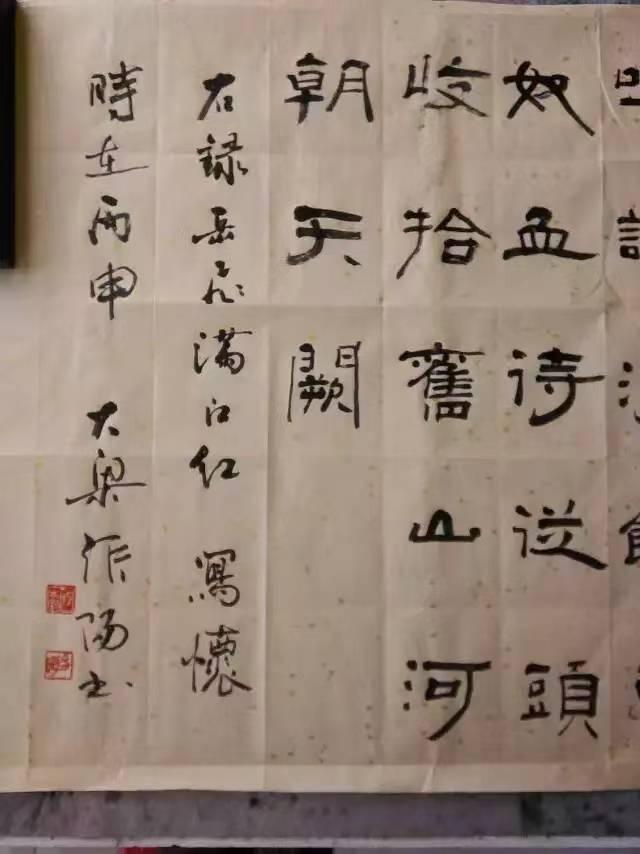 奴血待從頭
收拾舊山河
朝天闕
右録岳飛滿江紅 寫懷
時在丙申 大梁 陽书